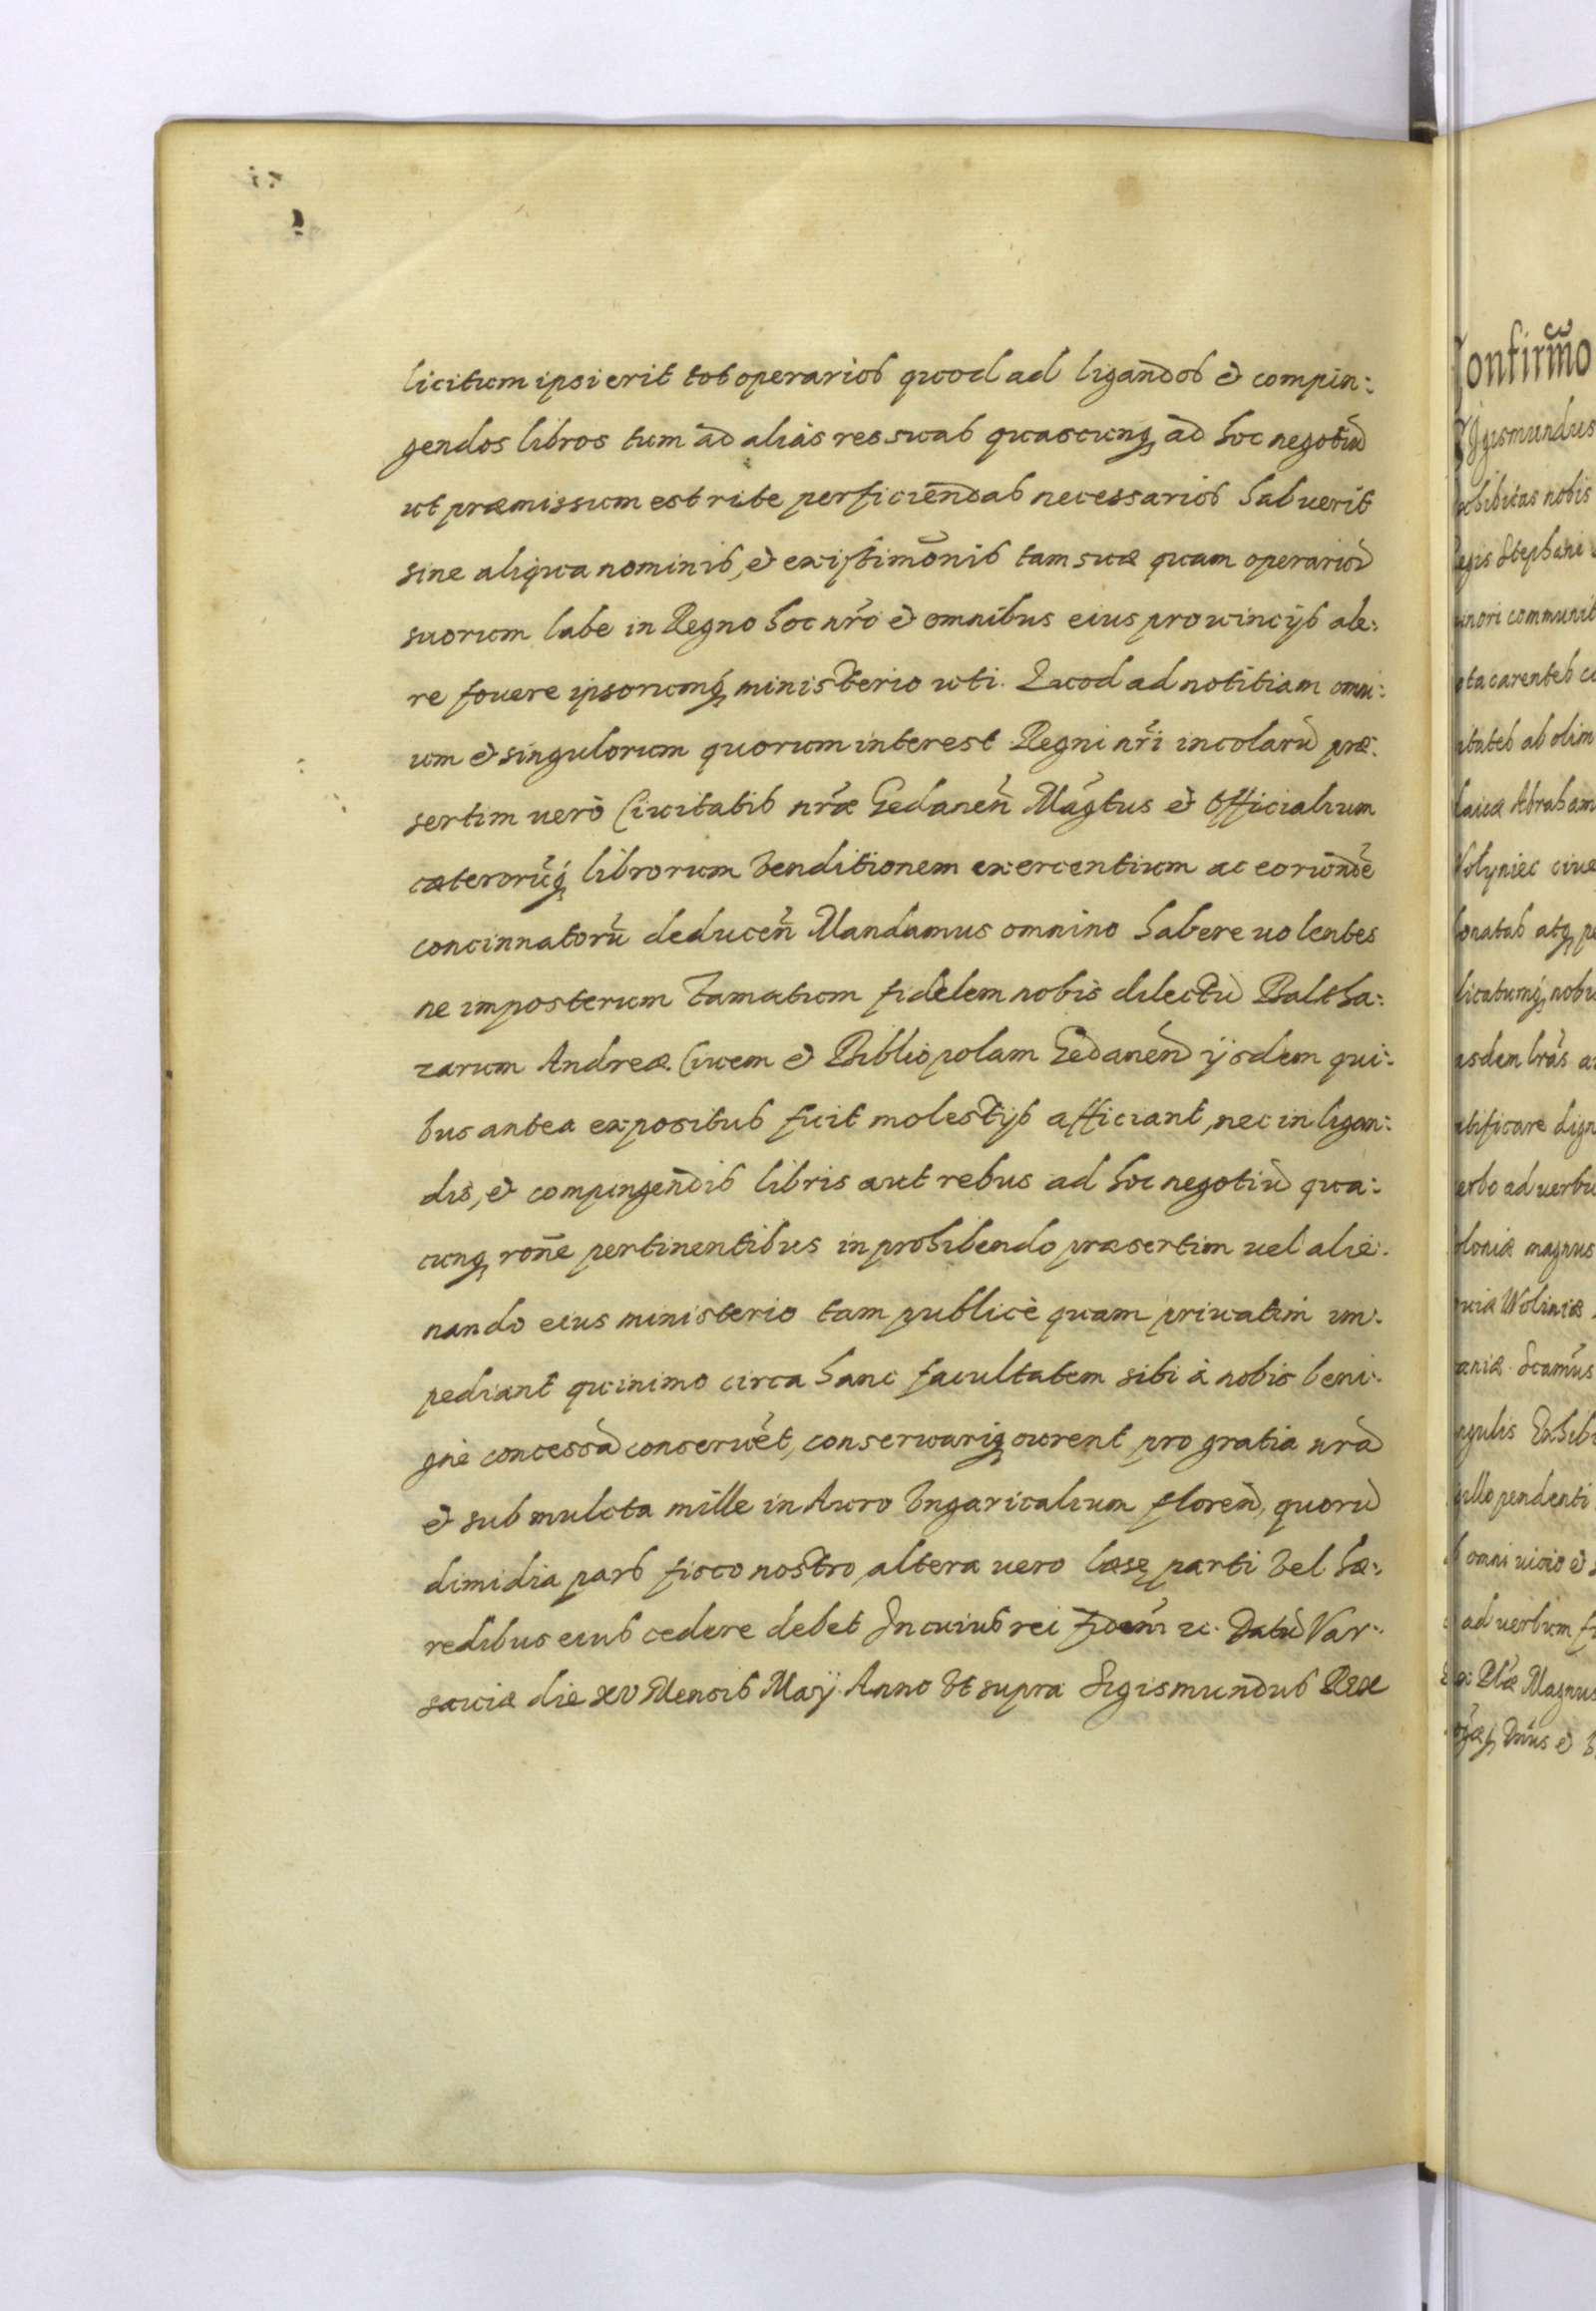 licitum ipsi erit tot operarios quod ad ligandos et compin:
gendos libros tum ad alias res suas quascunq ad hoc negotiū
ut præmissum est rite perficiendas necessarios habuerit
sine aliqua nominis, et existimōnis tam suæ quam operariorū
suorum labe in Regno hoc nrō et omnibus eius provincijs ale:
re fouere ipsorumq ministerio uti. Quod ad notitiam omni:
um et singulorum quorum interest Regni nrī incolarū præ:
sertim uerò Ciuitatis nræ Gedaneñ Magtus et Officialium
cæterorūq librorum venditionem exercentium ac eorundē
concinnatorū deduceñ Mandamus omnino habere uolentes
ne imposterum famatum fidelem nobis dilectū Baltha:
zarum Andreæ Ciuem et Bibliopolam Gedaneñ ijsdem qui:
bus antea expositus fuit molestijs afficiant, nec in ligan:
dis, et compingendis libris aut rebus ad hoc negotiū qua:
cunq roñe pertinentibus in prohibendo præsertim uel alie:
nando eius ministerio tam publicè quam priuatim im:
pediant quinimo circa hanc facultatem sibi à nobis beni:
gnè concessā conseruēt, conseruariq curent pro gratia nrā
et sub mulcta mille in Auro Vngaricalium floreñ, quorū
dimidia pars fisco nostro altera uero læsę parti vel hæ:
redibus eius cedere debet In cuius rei fidem ꝛc. Datū Var:
sauiæ die xv Mensis Maÿ Anno Vt supra Sigismundus Rex
Confirm̄o
Sigismundus
exhibitas nobis
Regis Stephani
minori communit
nota carentes
ab olim
Abraham
Wolyniec ciue
atq
licatumq nobis
asdem lrās
ratificare dign
uerbo ad uerbū
Poloniæ magnus
Woliniæ
aniæ. Scamus
singulis Exhibi
sigillo pendenti
omni uicio et
ad uerbum
Magnus
Dnus et